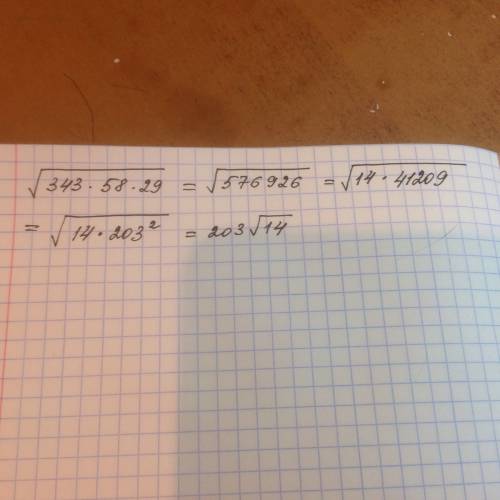 √343·58·29 = √576926 = √14·41209
= √14·203² = 203√14